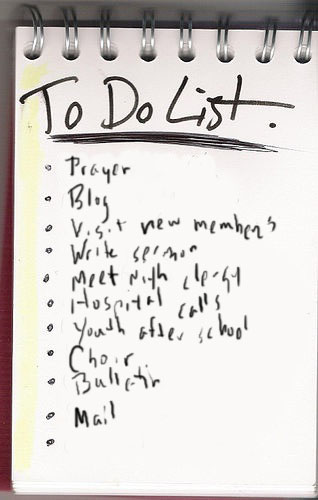 To Do List.
Prayer
Blog
Visit new members
Write sermon
Meet with clergy
Hospital calls
Youth after school
Choir
Bulletin
Mail